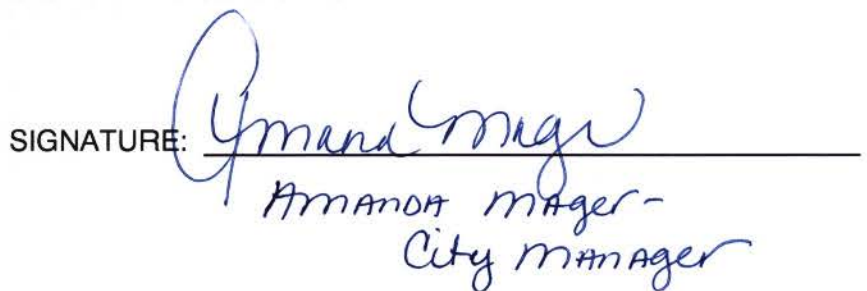 SIGNATURE: Amanda Mager
AMANDA MAger-
City MANAger